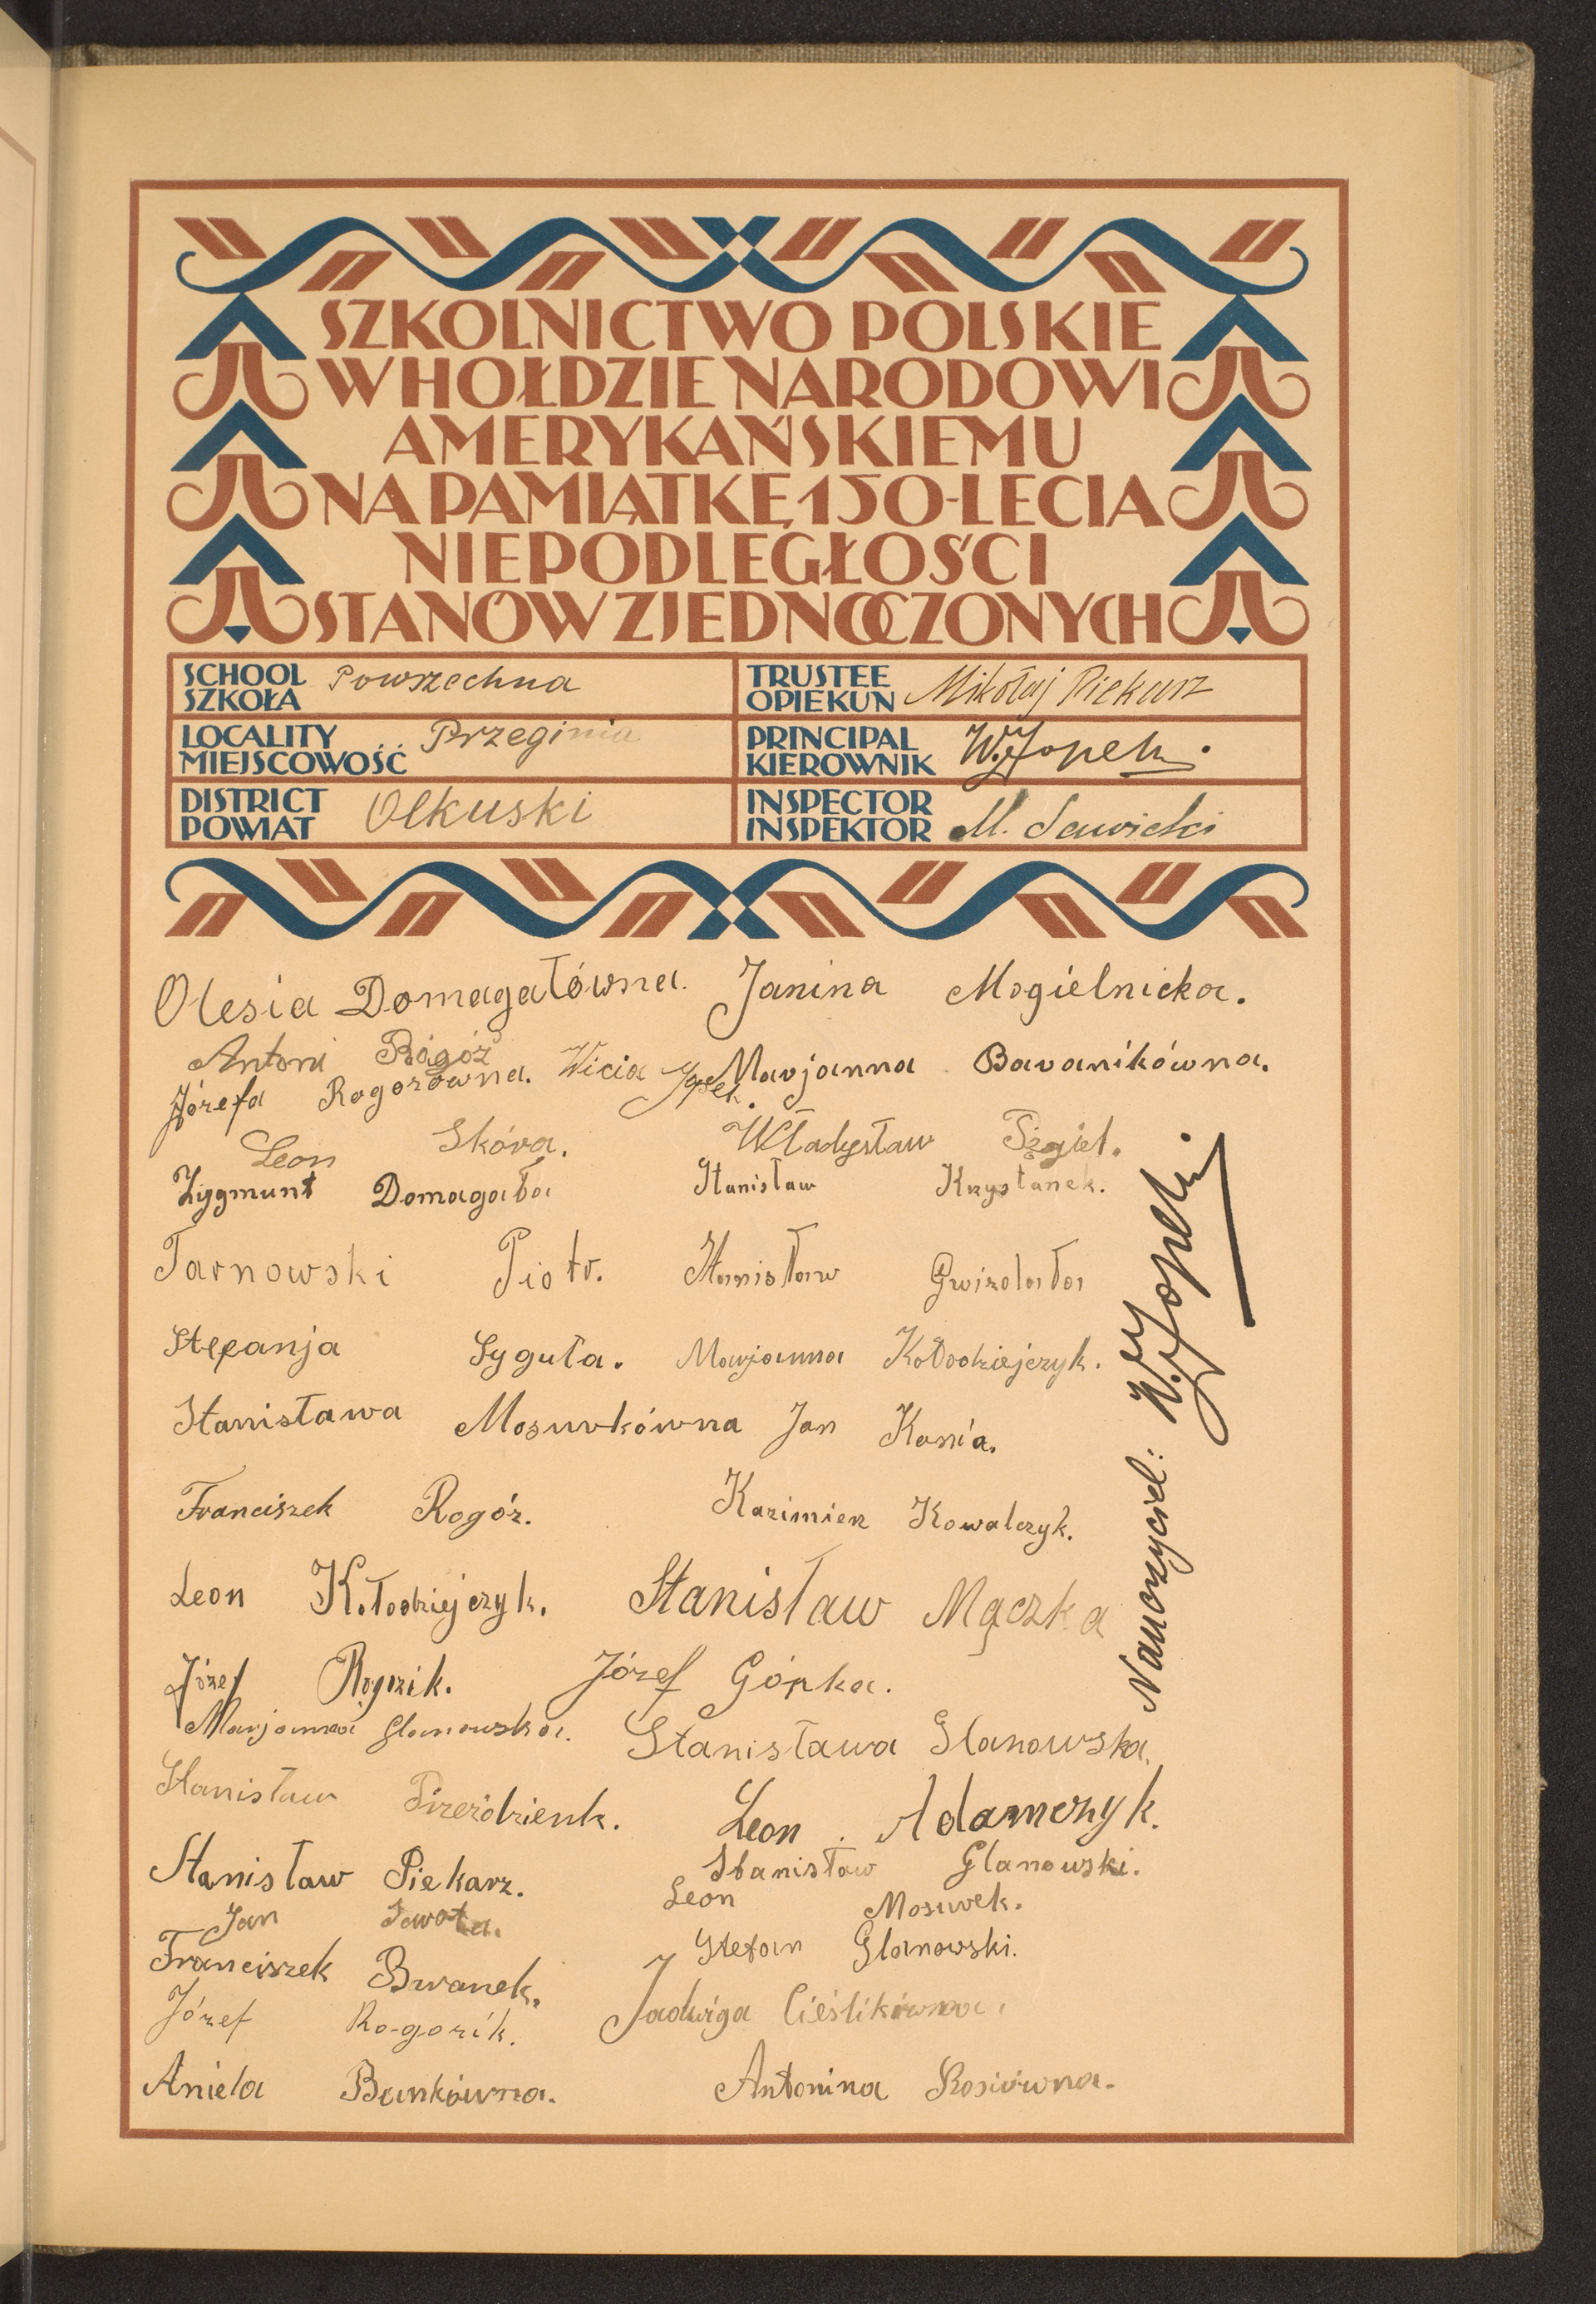 SZKOLNICTWO POLSKIE
W HOŁDZIE NARODOWI
AMERYKAŃSKIEMU
NA PAMIĄTKĘ 150-LECIA
NIEPODLEGŁOŚCI
STANÓW ZJEDNOCZONYCH
SCHOOL
SZKOŁA Powszechna
TRUSTEE
OPIEKUN Mikołaj Piekarz
LOCALITY
MIEJSCOWOŚĆ Przeginia
PRINCIPAL
KIEROWNIK W. Jopek
DISTRICT
POWIAT Olkuski
INSPECTOR
INSPEKTOR M. Sawicki
Olesia Domagałówna. Janina Mogielnicka.
Antoni Rogóż
Józefa Rogozówna. Wicia Józef. Marjanna Baranikówna.
Leon Skóra. Władysław
Zygmunt Domagała Stanisław Krystanek.
Tarnowski Piotr. Stanisław Gwizdała
Stefanja Syguła. Marjanna Kołodziejczyk.
Stanisława Mosurkówna Jan Kania.
Franciszek Rogóz. Kazimierz Kowalczyk.
Leon Kołodziejczyk. Stanisław Mączka
Józef Rogozik. Józef Górka.
Marjanna Glanowska. Stanisława Glanowska.
Stanisław Leon Adamczyk.
Stanisław Piekarz. Stanisław Glanowski.
Jan Leon Mosurek.
Franciszek Stefan Glanowski.
Józef Rogozik. Jadwiga Cieślikówna.
Aniela Bankówna. Antonina Rosiówna.
Nauczyciel: W. Jopek